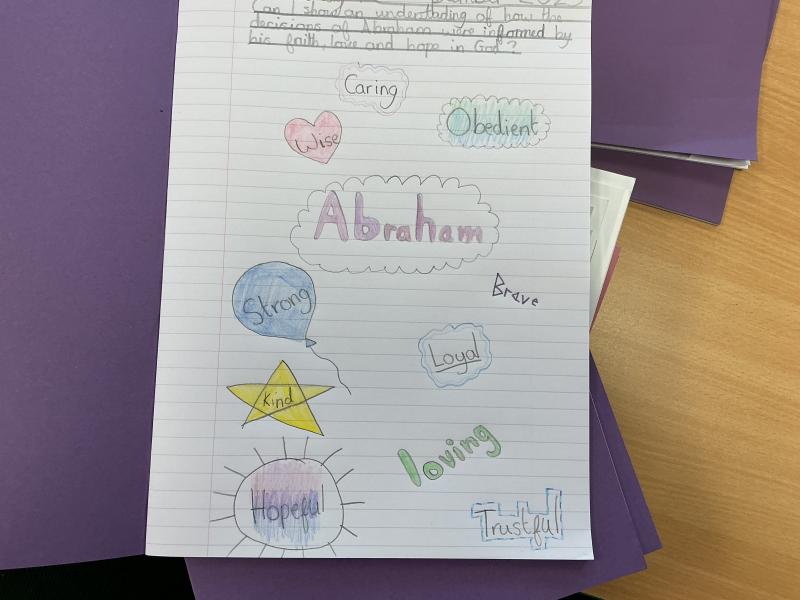 2023
Can I show an understanding of how the
decisions of Abraham were informed by
his faith, love and hope in God?
Caring
Wise
Obedient
Abraham
Strong
Brave
Loyal
Kind
loving
Hopeful
Trustful